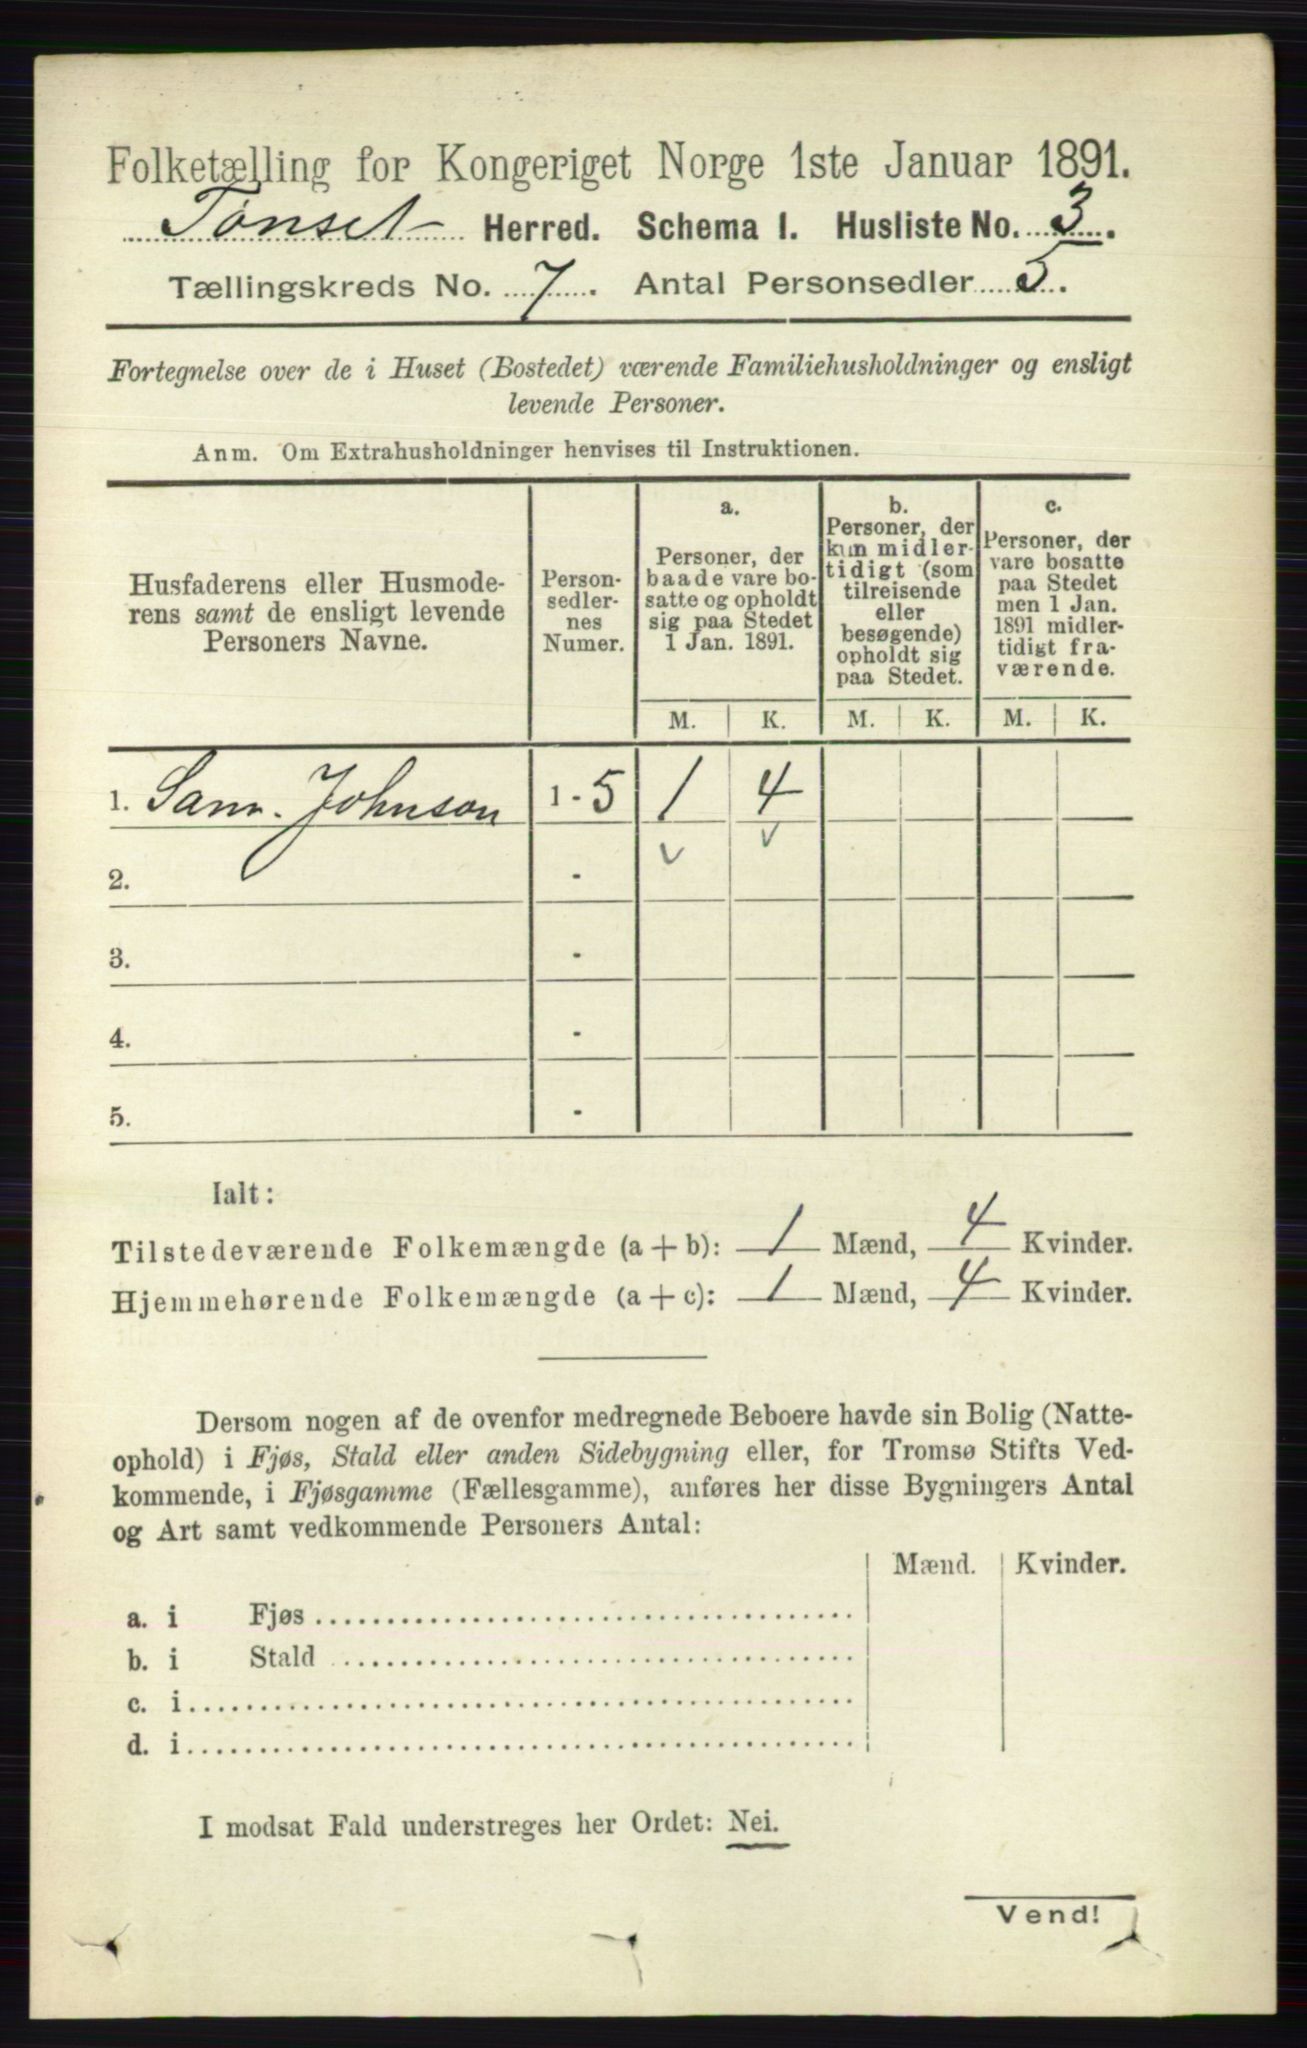 Folketælling for Kongeriget Norge 1ste Januar 1891.
Tønset Herred. Schema I. Husliste No. 3.
Tællingskreds No. 7. Antal Personsedler 5.
Fortegnelse over de i Huset (Bostedet) værende Familiehusholdninger og ensligt
levende Personer.
Anm. Om Extrahusholdninger henvises til Instruktionen.
Husfaderens eller Husmode-
rens samt de ensligt levende
Personers Navne.
Person-
sedler-
nes
Numer.
a.
Personer, der
baade vare bo-
satte og opholdt
sig paa Stedet
1 Jan. 1891.
b.
Personer, der
kun midler-
tidigt (som
tilreisende
eller
besøgende)
opholdt sig
paa Stedet.
c.
Personer, der
vare bosatte
paa Stedet
men 1 Jan.
1891 midler-
tidigt fra-
værende.
M. K. M. K. M. K.
1. Sam. Johnson 1 - 5 1 4
2. -
3. -
4. -
5. -
Ialt:
Tilstedeværende Folkemængde (a + b): 1 Mænd, 4 Kvinder.
Hjemmehørende Folkemængde (a + c): 1 Mænd, 4 Kvinder.
Dersom nogen af de ovenfor medregnede Beboere havde sin Bolig (Natte-
ophold) i Fjøs, Stald eller anden Sidebygning eller, for Tromsø Stifts Ved-
kommende, i Fjøsgamme (Fællesgamme), anføres her disse Bygningers Antal
og Art samt vedkommende Personers Antal:
Mænd. Kvinder.
a. i Fjøs
b. i Stald
c. i
d. i
I modsat Fald understreges her Ordet: Nei.
Vend!